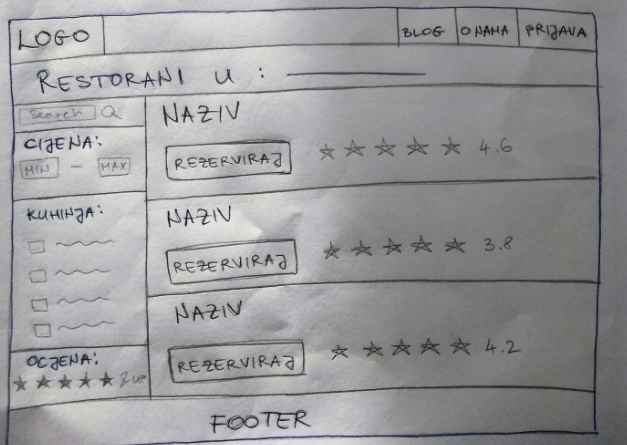 LOGO
BLOG
O NAMA
PRIJAVA
RESTORANI U :
Search
CIJENA:
MIN - MAX
KUHINJA:
OCJENA:
& UP
NAZIV
REZERVIRAJ
4.6
NAZIV
REZERVIRAJ
3.8
NAZIV
REZERVIRAJ
4.2
FOOTER